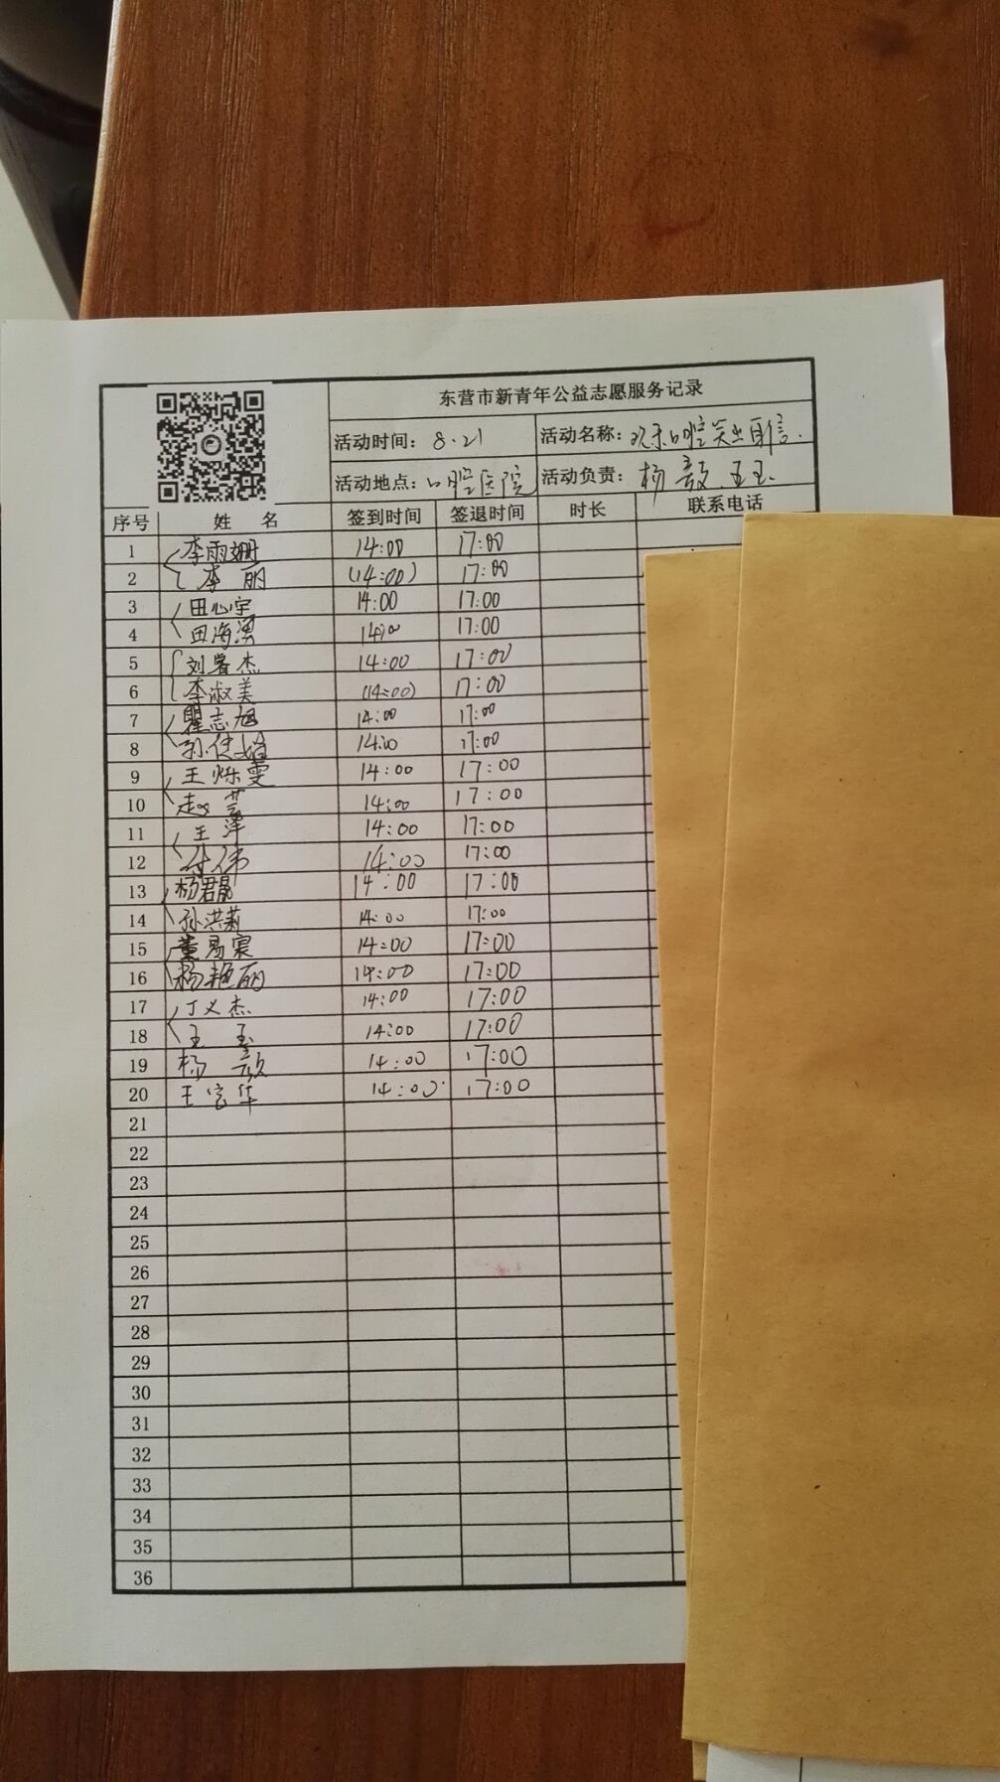 东营市新青年公益志愿服务记录
活动时间: 8.21 活动名称: 口腔 自信.
活动地点: 口腔医院 活动负责: 杨 王玉.
序号 姓 名 签到时间 签退时间 时长 联系电话
1 李雨姗 14:00 17:00
2 李丽 (14:00) 17:00
3 田心宇 14:00 17:00
4 田海 14:00 17:00
5 刘睿杰 14:00 17:00
6 李淑美 (14:00) 17:00
7 瞿志旭 14:00 17:00
8 孙 14:00 17:00
9 王烁雯 14:00 17:00
10 赵芸 14:00 17:00
11 王泽 14:00 17:00
12 付伟 14:00 17:00
13 杨君晟 14:00 17:00
14 孙洪莉 14:00 17:00
15 董易宸 14:00 17:00
16 杨艳丽 14:00 17:00
17 丁义杰 14:00 17:00
18 王玉 14:00 17:00
19 杨 14:00 17:00
20 王宝华 14:00 17:00
21
22
23
24
25
26
27
28
29
30
31
32
33
34
35
36